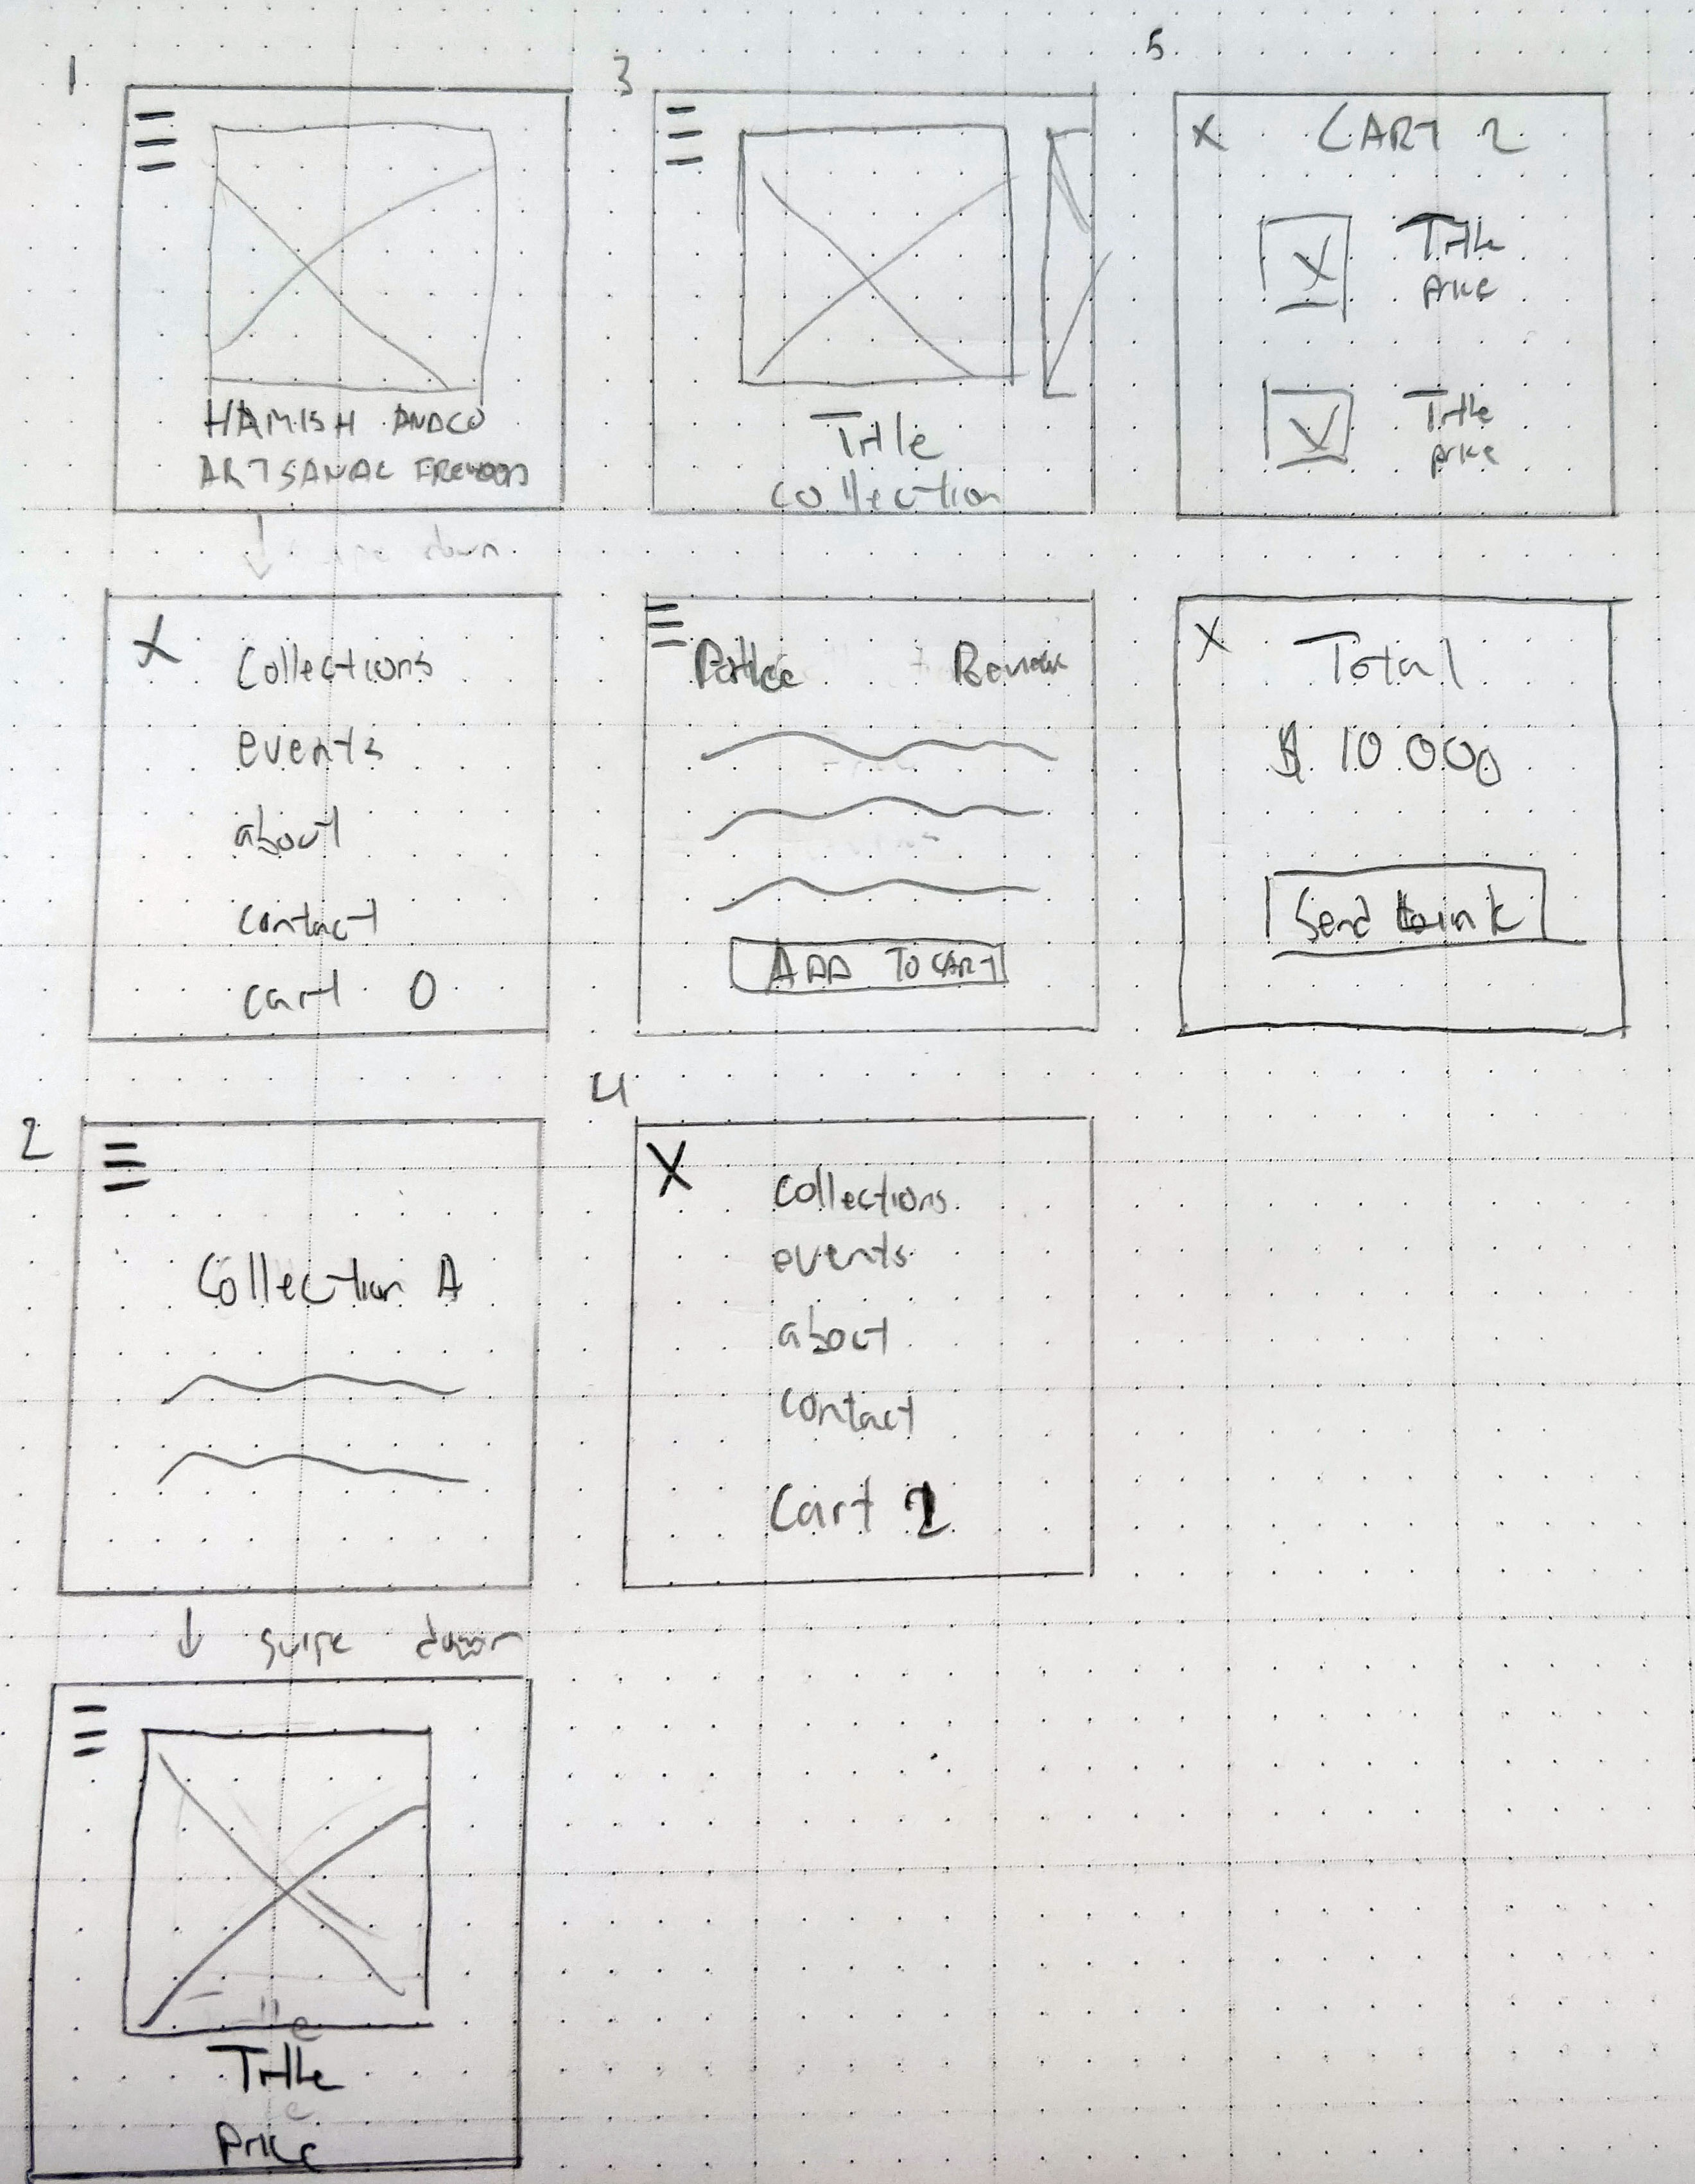 1
HAMISH ANDCO
ARTISANAL FIREWOOD
down
X
Collections
events
about
contact
cart 0
2
Collection A
swipe down
Title
Price
3
Title
collection
Review
ADD TO CART
4
X
Collections
events
about
contact
Cart 2
5
X CART 2
Title
price
Title
price
X Total
$ 10 000
Send